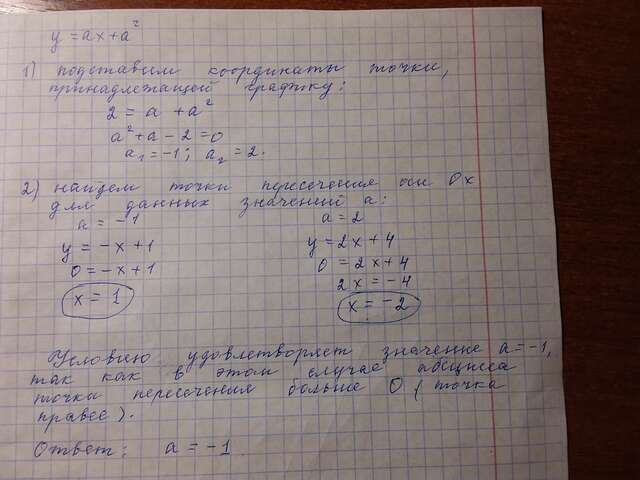 y = ax + a²
1) подставим координаты точки,
принадлежащей графику:
2 = a + a²
a² + a - 2 = 0
a₁ = -1; a₂ = 2.
2) найдем точки пересечения оси Ox
для данных значений a:
a = -1
y = -x + 1
0 = -x + 1
x = 1
a = 2
y = 2x + 4
0 = 2x + 4
2x = -4
x = -2
Условию удовлетворяет значение a = -1,
так как в этом случае абсцисса
точки пересечения больше 0 (точка
правее).
Ответ: a = -1